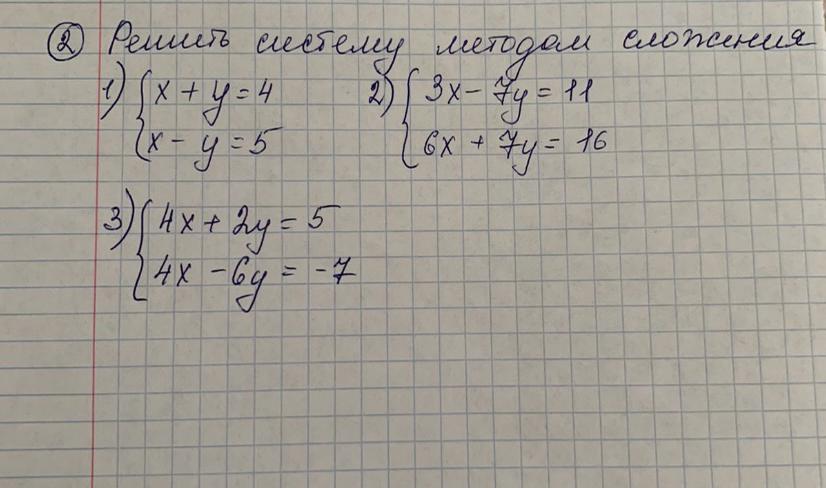 ② Решить систему методом сложения
1) { x + y = 4
x - y = 5
2) { 3x - 7y = 11
6x + 7y = 16
3) { 4x + 2y = 5
4x - 6y = -7